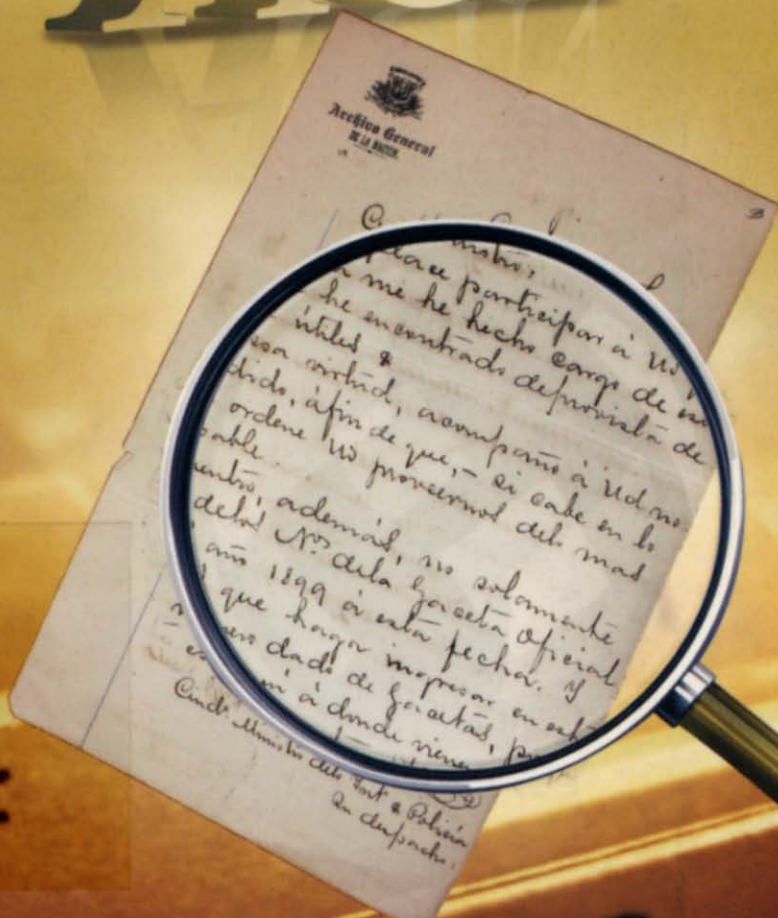 Archivo General
DE LA NACION.
place participar á Ud
me he hecho cargo de
he encontrado deprovista de
útiles &
esa virtud, acompaño á Ud. no-
dido, áfin de que, – si cabe en lo
ordene Ud proveernos delo mas
sable.
además, no solamente
delos Nos dela Gaceta Oficial
año 1899 á esta fecha. Y
que haga ingresar en
dado de Gacetas,
ni á donde viene
Cindº Ministro delo Intr & Policía
En despacho.